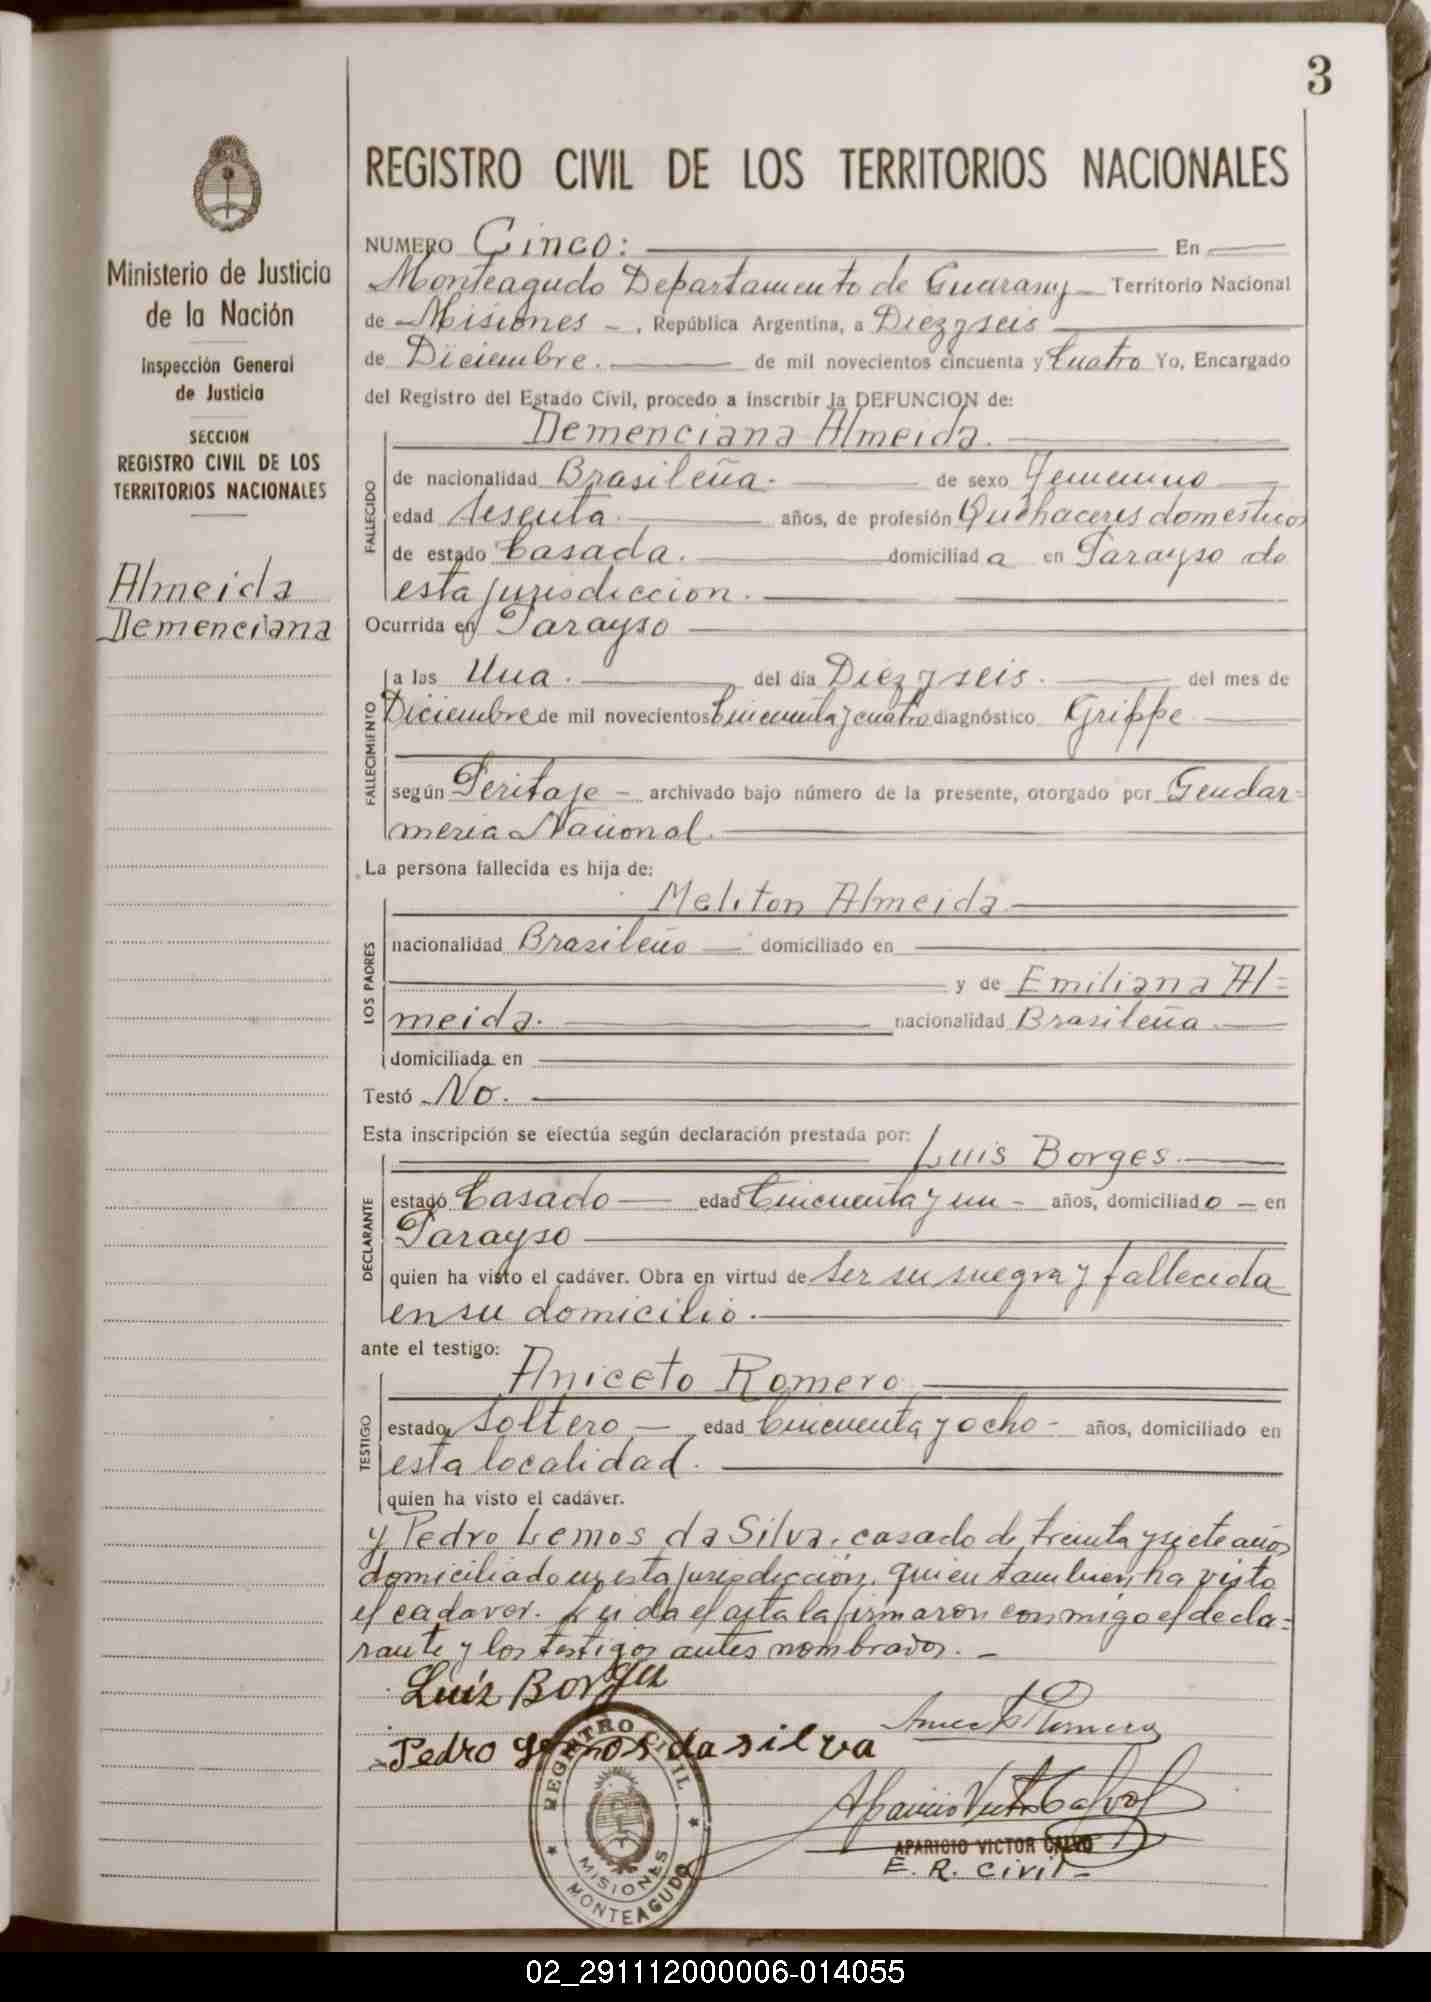 3
REGISTRO CIVIL DE LOS TERRITORIOS NACIONALES
Ministerio de Justicia
de la Nación
Inspección General
de Justicia
SECCION
REGISTRO CIVIL DE LOS
TERRITORIOS NACIONALES
Almeida
Demenciana
NUMERO Cinco: En
Monteagudo Departamento de Guarany Territorio Nacional
de Misiones -, República Argentina, a Diez y seis
de Diciembre. de mil novecientos cincuenta y Cuatro Yo, Encargado
del Registro del Estado Civil, procedo a inscribir la DEFUNCION de:
Demenciana Almeida.
FALLECIDO
de nacionalidad Brasileña. de sexo Femenino
edad Sesenta años, de profesión Quehaceres domesticos
de estado Casada. domiciliad a en Parayso de
esta jurisdiccion.
Ocurrida en Parayso
FALLECIMIENTO
a las Una. del día Diez y seis. del mes de
Diciembre de mil novecientos Cincuenta y cuatro diagnóstico Grippe
según Peritaje - archivado bajo número de la presente, otorgado por Gendar=
meria Nacional.
La persona fallecida es hija de:
LOS PADRES
Meliton Almeida
nacionalidad Brasileño domiciliado en
y de Emiliana Al=
meida. nacionalidad Brasileña
domiciliada en
Testó No.
Esta inscripción se efectúa según declaración prestada por:
Luis Borges.
DECLARANTE
estado Casado edad Cincuenta y un - años, domiciliado - en
Parayso
quien ha visto el cadáver. Obra en virtud de ser su suegra y fallecida
en su domicilio.
ante el testigo:
Aniceto Romero
TESTIGO
estado Soltero edad Cincuenta y ocho - años, domiciliado en
esta localidad.
quien ha visto el cadáver.
y Pedro Lemos da Silva, casado de treinta y siete años
domiciliado en esta jurisdiccion, quien tambien ha visto
el cadaver. Leida el acta la firmaron conmigo el decla=
rante y los testigos antes nombrados. -
Luiz Borges
Aniceto Romero
Pedro Lemos da silva
REGISTRO CIVIL
MISIONES
MONTEAGUDO
Aparicio Victor Calvo
APARICIO VICTOR CALVO
E. R. Civil -
02_291112000006-014055